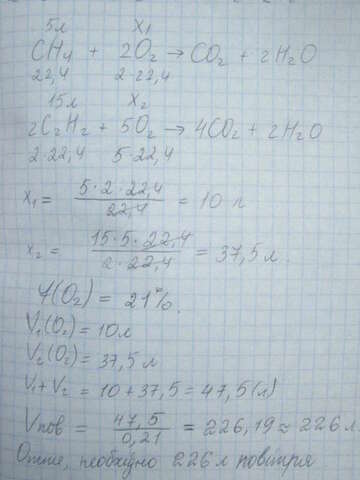 5л x₁
CH₄ + 2O₂ → CO₂ + 2H₂O
22,4 2·22,4
15л x₂
2C₂H₂ + 5O₂ → 4CO₂ + 2H₂O
2·22,4 5·22,4
x₁ = 5·2·22,4 / 22,4 = 10 л
x₂ = 15·5·22,4 / 2·22,4 = 37,5 л.
φ(O₂) = 21%.
V₁(O₂) = 10л
V₂(O₂) = 37,5 л
V₁+V₂ = 10 + 37,5 = 47,5 (л)
Vпов = 47,5 / 0,21 = 226,19 ≈ 226 л
Отже, необхідно 226 л повітря